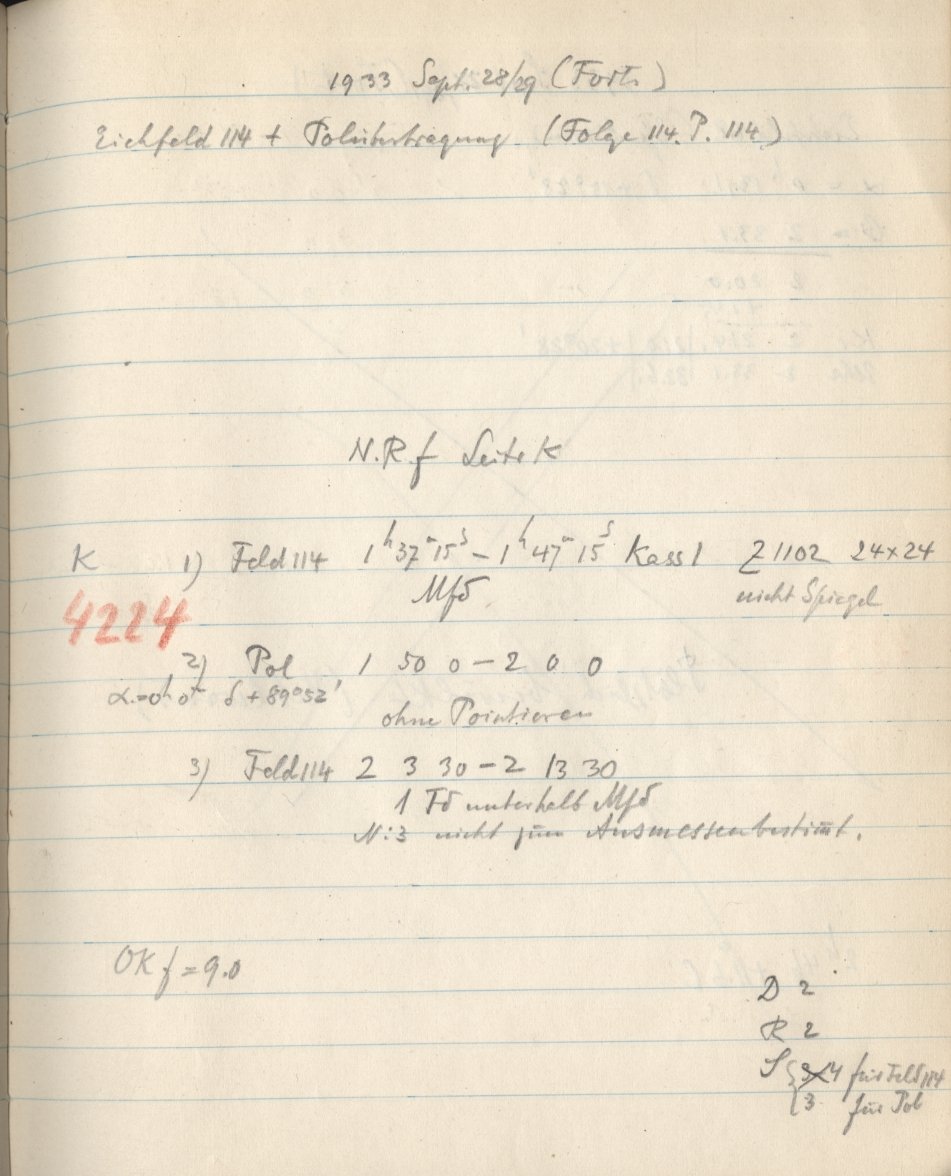 1933 Sept. 28/29 (Forts.)
Eichfeld 114 + Polübertragung (Folge 114. P. 114.)
N.R.f Seite K
K 1) Feld 114 1h 37m 15s – 1h 47m 15s Kass 1 Z 1102 24x24
Mfd. nicht Spiegel
4224
2) Pol 1 50 0 – 2 0 0
α = 0h 0m δ + 89°52'
ohne Pointieren
3) Feld 114 2 3 30 – 2 13 30
1 Fd unterhalb Mfd
N: 3 nicht zum Ausmessen bestimmt.
OK f = 9.0
D 2
R 2
S 4 für Feld 114
3 für Pol